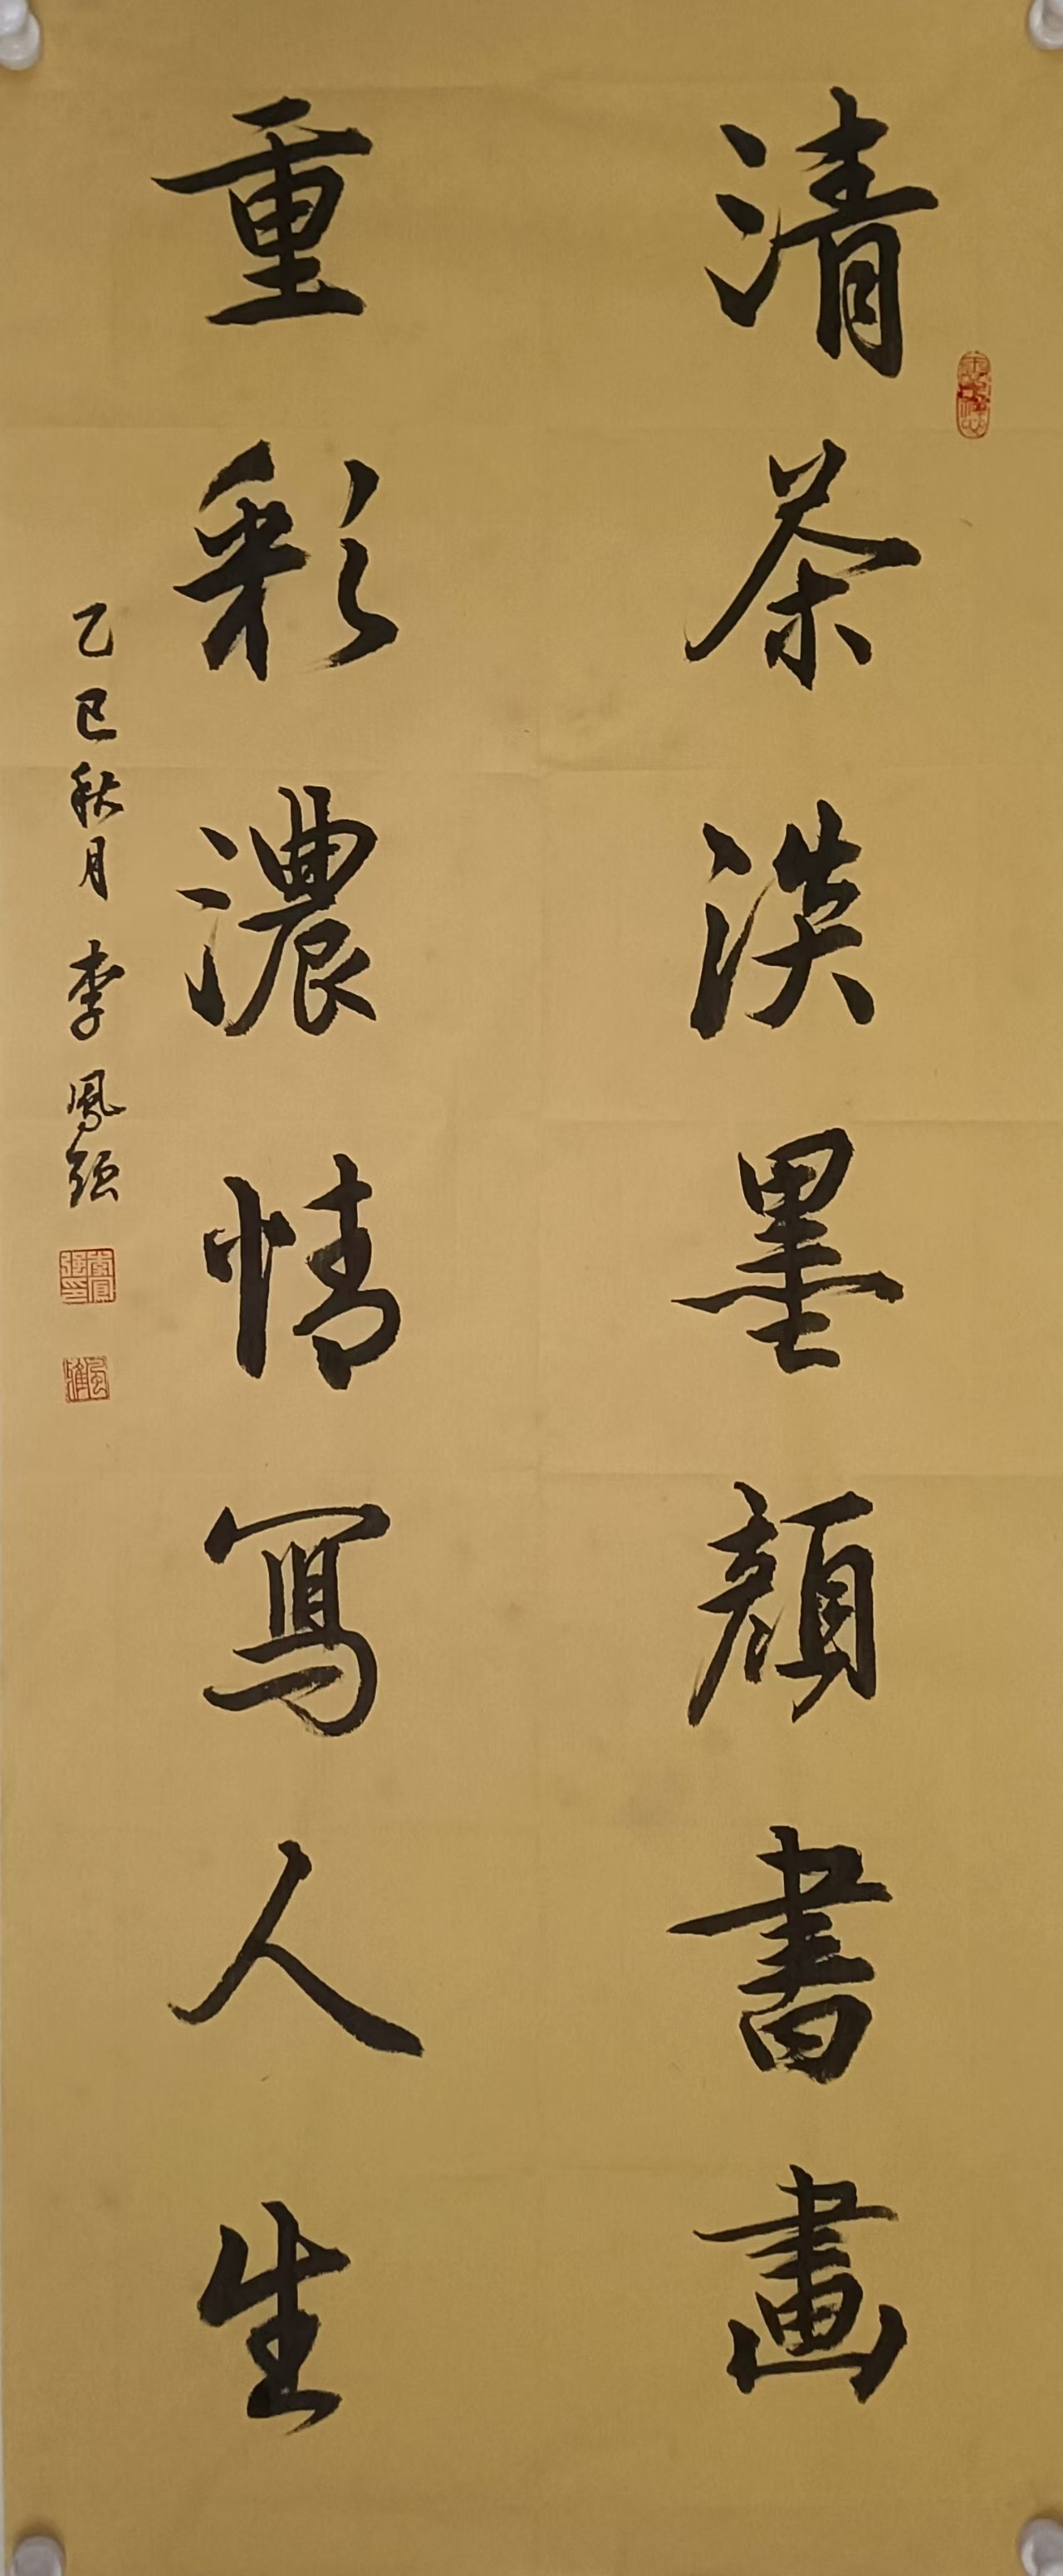 清茶淡墨顏書畫
重彩濃情寫人生
乙巳秋月 李鳳強